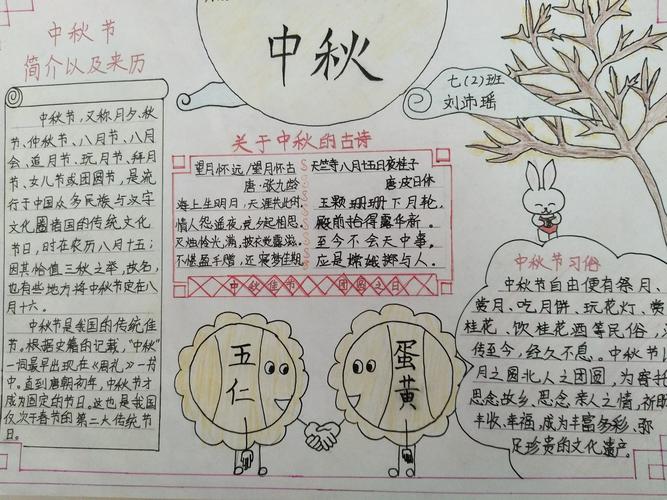 中秋
七(2)班
刘沛瑶
中秋节
简介以及来历
中秋节,又称月夕、秋
节、仲秋节、八月节、八月
会、追月节、玩月节、拜月
节、女儿节或团圆节,是流
行于中国众多民族与汉字
文化圈诸国的传统文化
节日,时在农历八月十五;
因其恰值三秋之半,故名,
也有些地方将中秋节定在八
月十六。
中秋节是我国的传统佳
节。根据史籍的记载,“中秋”
一词最早出现在《周礼》一书
中。直到唐朝初年,中秋节才
成为固定的节日。这也是我国
仅次于春节的第二大传统节
日。
关于中秋的古诗
望月怀远/望月怀古
唐·张九龄
海上生明月,天涯共此时。
情人怨遥夜,竟夕起相思。
灭烛怜光满,披衣觉露滋。
不堪盈手赠,还寝梦佳期。
天竺寺八月十五日夜桂子
唐·皮日休
玉颗珊珊下月轮,
殿前拾得露华新。
至今不会天中事,
应是嫦娥掷与人。
中秋佳节
团圆之日
五仁
蛋黄
中秋节习俗
中秋节自由便有祭月、
赏月、吃月饼、玩花灯、赏
桂花、饮桂花酒等民俗,
传至今,经久不息。中秋节
月之圆北人之团圆,为寄托
思念故乡、思念亲人之情,祈盼
丰收、幸福,成为丰富多彩、弥
足珍贵的文化遗产。